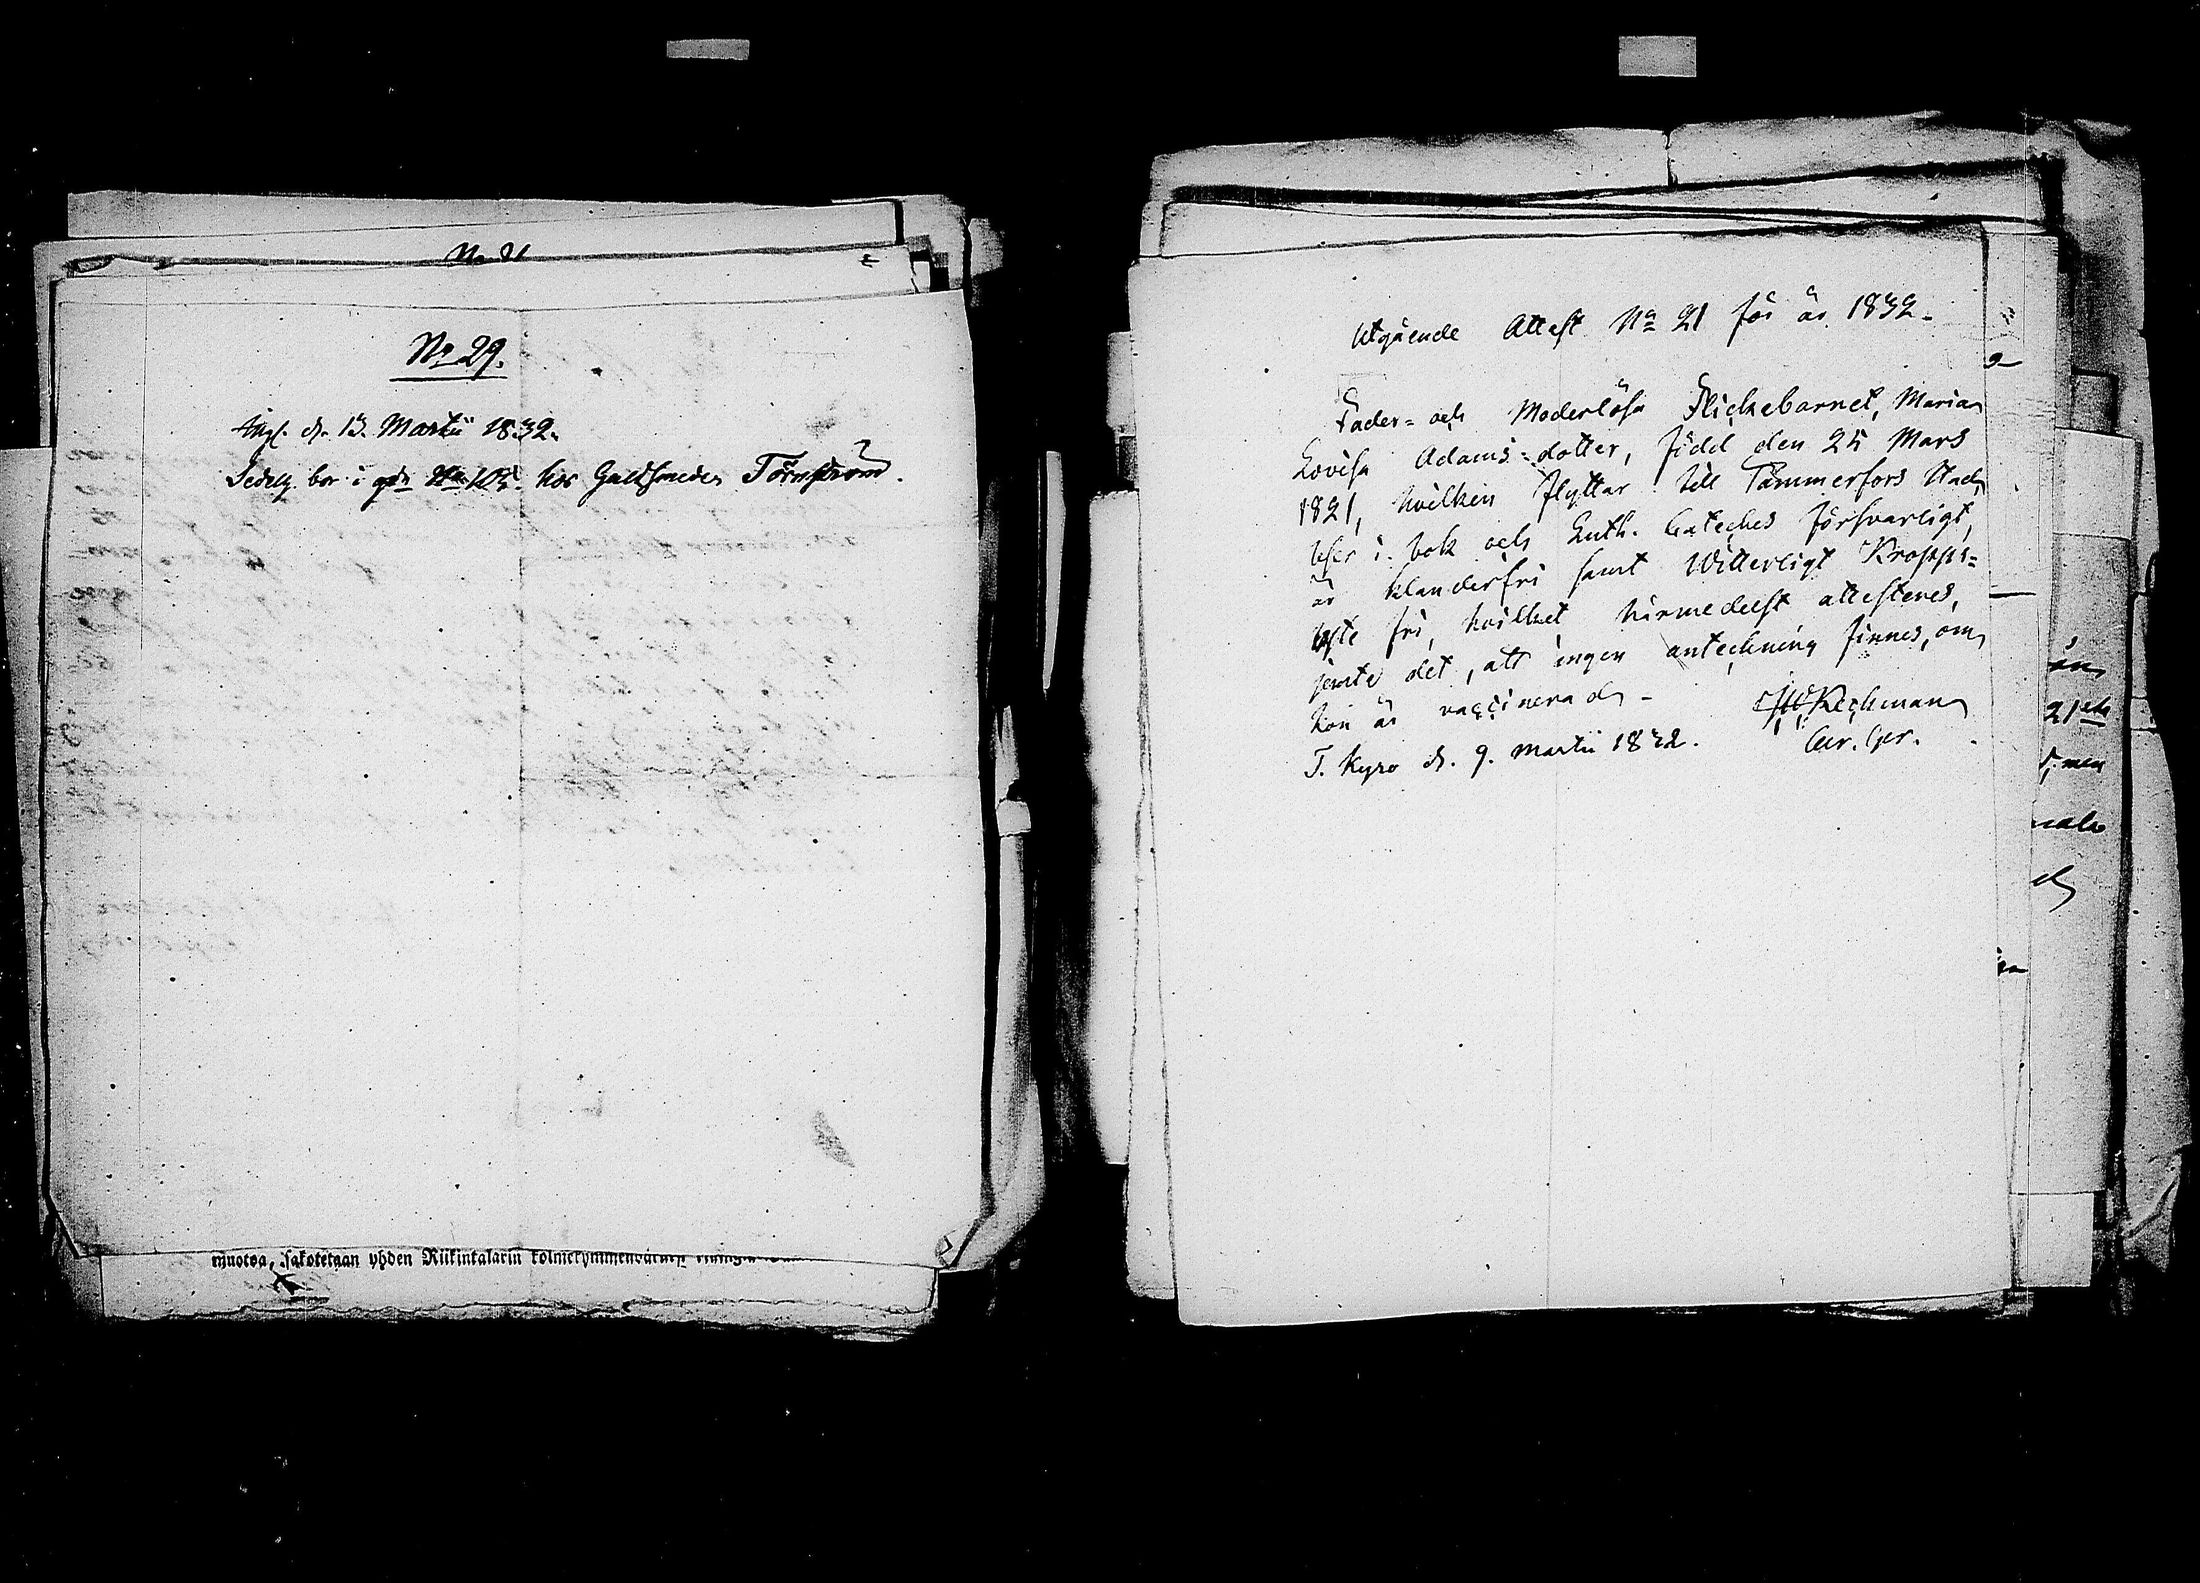 No 29.
Angf. d. 13. Martii 1832.
bor i gdn No 105. hos Guldsmeden Törnström.
muotoa, sakotetaan yhden Riikintalarin
Utgående Attest No 21 för år 1832.
Fader- och Moderlösa Flickebarnet, Maria
Lovisa Adams-dotter, född den 25 Mars
1821, hvilken flyttar till Tammerfors Stad,
läser i bok och Luth. Cateches försvarligt,
är klanderfri samt Witterligt Kropps-
lyte fri, hvilket härmedelst attesteres,
jemte det, att ingen anteckning finnes, om
hon är vaccinerad
T. Kyro d. 9. Martii 1832.
21
men